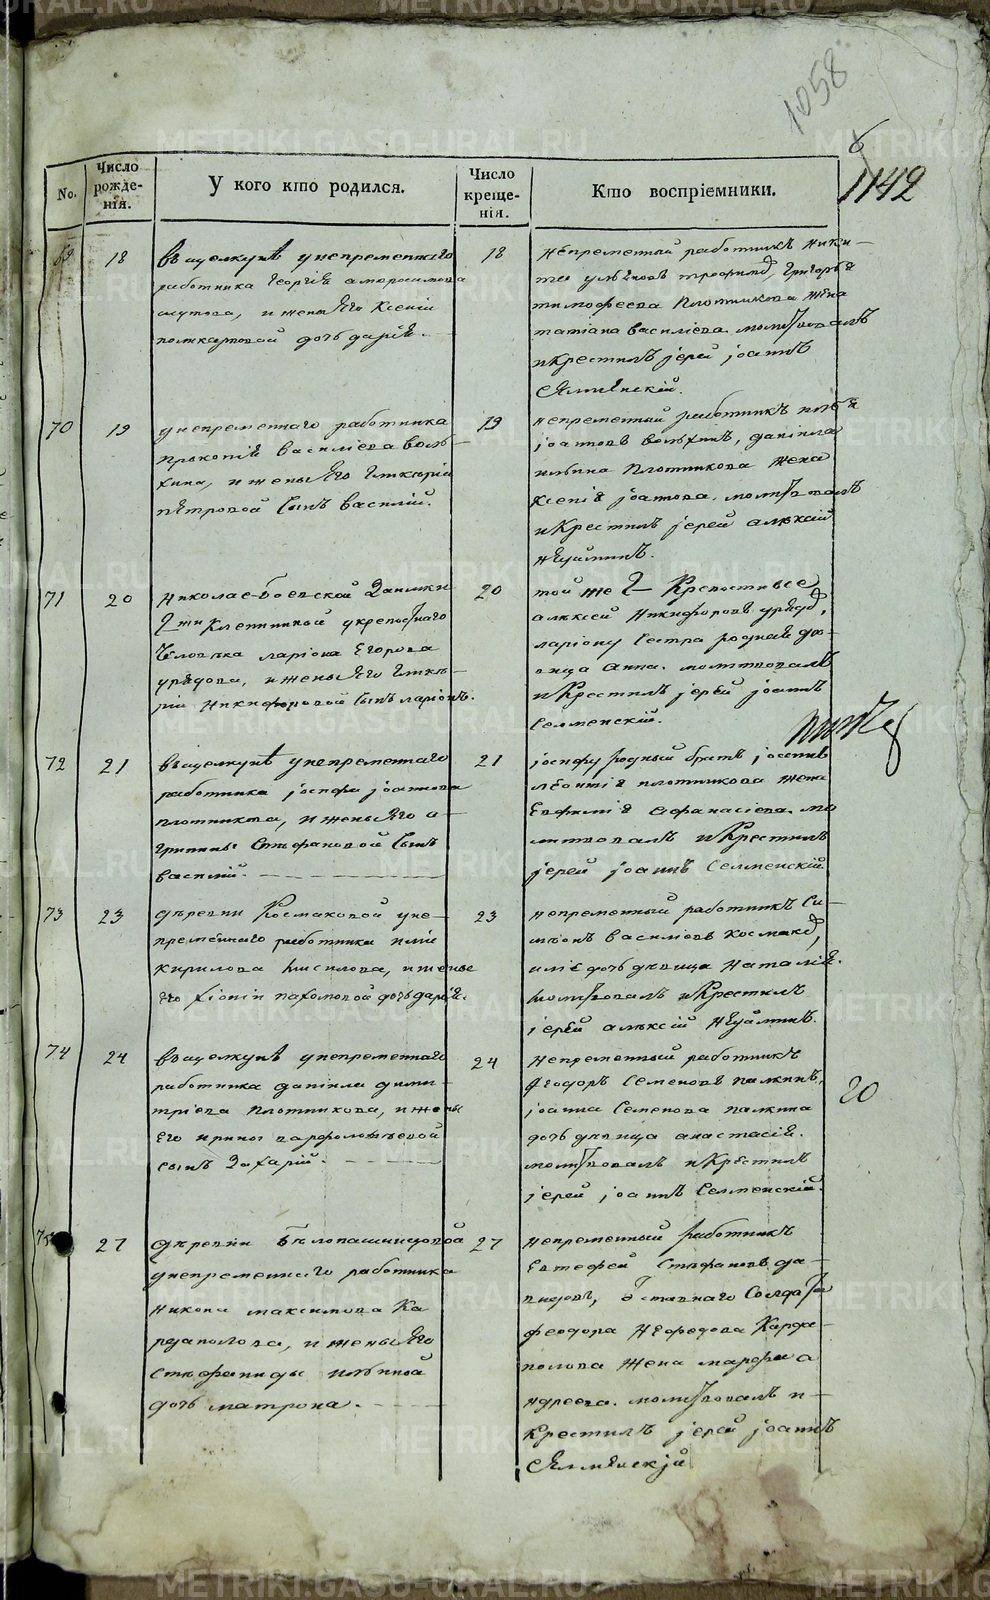 1058
1142
No.
Число рожде-нія.
У кого кто родился.
Число креще-нія.
Кто воспріемники.
69
18
въ щелкунѣ у непременнаго
работника георгія амвросимова
шутова, и жены Его Ксеніи
поликарповой дочь дарія.
18
непременный работникъ ники-
та ульяновъ трофимо, Григорья
тимофеева Плотникова жена
татіана василіева. молитвовалъ
и Крестилъ іерей іоаннъ
Селменскій.
70
19
у непременнаго работника
прокопія василіева воль-
хина, и жены Его гликеріи
пЕтровой Сынъ василій.
19
непременный работникъ
іоанновъ вольхинъ, даніила
ильина Плотникова жена
Ксенія іоаннова. молитвовалъ
и Крестилъ іерей алексій
71
20
николае-боевской Заимки
у крепостнаго
человѣка ларіона Егорова
и жены Его глике-
ріи никифоровой Сынъ ларіонъ.
20
той же
алексей никифоровъ
ларіону Сестра родная дѣ-
вица анна. молитвовалъ
и Крестилъ іерей іоаннъ
Селменскій.
72
21
въ щелкунѣ у непременнаго
работника іосифа іоаннова
плотникова, и жены Его а-
грипины Стефановой Сынъ
василій.
21
іосифу родный братъ
леонтія плотникова жена
Евфимія афанасіева. мо
литвовалъ и Крестилъ
іерей іоаннъ Селменскій
73
23
деревни Космаковой у не-
пременнаго работника иліи
кирилова и жены
Его хіоніи пахомовой дочь дарія.
23
непременный работникъ Си-
меонъ василіевъ космако,
иліе дочь девица наталія.
молитвовалъ и Крестилъ
іерей алексій
74
24
въ щелкунѣ у непременнаго
работника даніила дими-
тріева плотникова, и жены
Его ирины варфоломѣевой
сынъ Захарій.
24
непременный работникъ
Феодоръ Семеновъ палкинъ,
іоанна Семенова палкина
дочь девица анастасія.
молитвовалъ и Крестилъ
іерей іоаннъ Селменскій.
20
75
27
деревни Белопашинцовой
у непременнаго работника
никона максимова Ка
рзаполова, и жены Его
Стефаниды ильиной
дочь матрона.
27
непременный работникъ
Евтефей Стефановъ да-
выдовъ, отставнаго Солдата
феодора
жена марфа а
ндреева. молитвовалъ и
Крестилъ іерей іоаннъ
Селменскій
METRIKI.GASO-URAL.RU